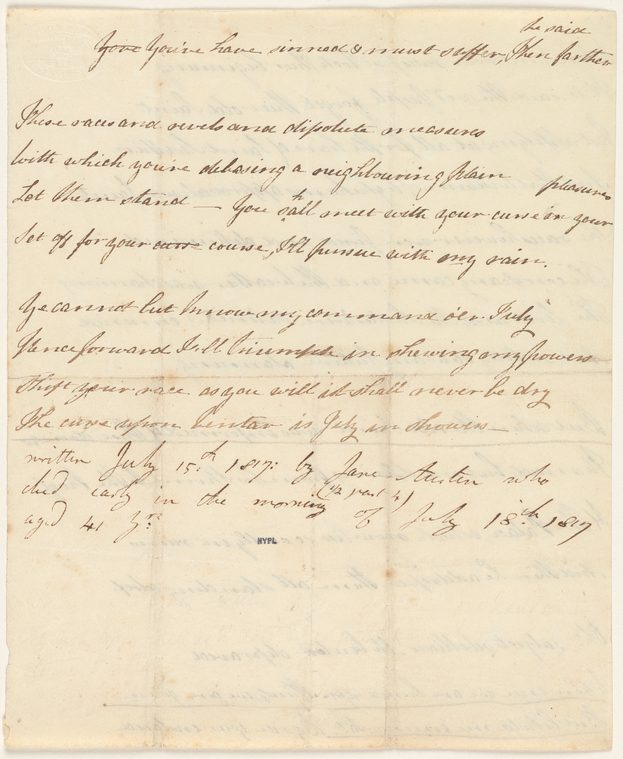 he said
Yove You've have sinned & must suffer, Then farther
These races and revels and dissolute measures
With which you're debasing a neighbouring Plain
Let them stand — You shall meet with your curse in your pleasures
Set off for your curse course, I'll pursue with my rain.
Ye cannot but know my command o'er July
Henceforward I'll triumph in shewing my powers
Shift your race as you will it shall never be dry
The curse upon Ventar is July in showers —
written July 15.th 1817: by Jane Austen who
died early in the morning (1/2 past 4) of July 18.th 1817
aged 41 yrs
NYPL